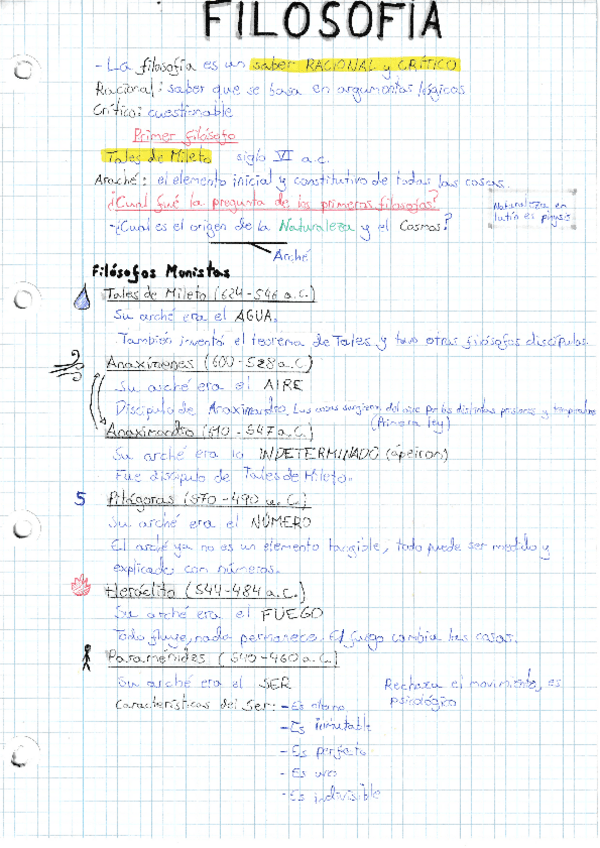 FILOSOFÍA
- La filosofía es un saber RACIONAL y CRÍTICO
Racional: saber que se basa en argumentos lógicos
Crítico: cuestionable
Primer filósofo
Tales de Mileto siglo VI a.c.
Araché: el elemento inicial y constitutivo de todas las cosas.
¿Cual fué la pregunta de los primeros filosofos?
Naturaleza en
latín es physis
-¿Cual es el origen de la Naturaleza y el Cosmos?
Arché
Filósofos Monistas
Tales de Mileto (624-546 a.C.)
Su arché era el AGUA.
También inventó el teorema de Tales y tuvo otros filósofos discípulos.
Anaxímenes (600-528 a.C)
Su arché era el AIRE
Discípulo de Anaximandro. Las cosas surgieron del aire por las distintas presiones y temperaturas
(Primera ley)
Anaximandro (610-547 a.C.)
Su arché era lo INDETERMINADO (ápeiron)
Fue discípulo de Tales de Mileto.
5 Pitágoras (570-490 a.C.)
Su arché era el NÚMERO
El arché ya no es un elemento tangible, todo puede ser medido y
explicado con números.
Heráclito (544-484 a.C.)
Su arché era el FUEGO
Todo fluye, nada permanece. El fuego cambia las cosas.
Paraménides (540-460 a.C.)
Su arché era el SER
Rechaza el movimiento, es
psicológico
Características del Ser: - Es eterno
- Es inmutable
- Es perfecto
- Es uno
- Es indivisible